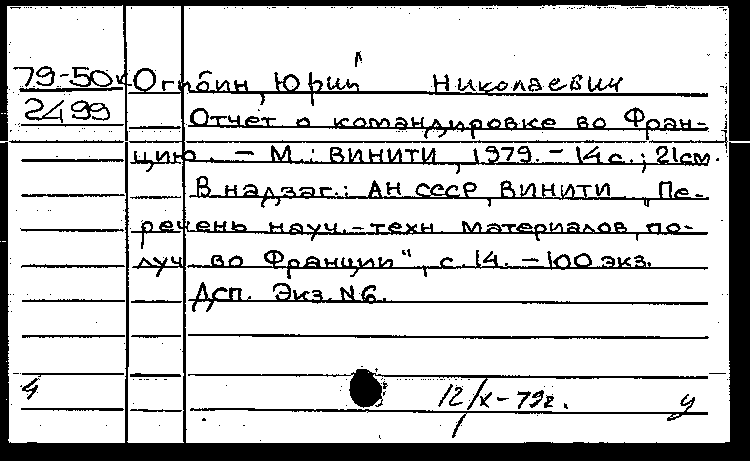 79-50к Огибин, Юрий Николаевич
2499 Отчет о командировке во Фран-
цию. - М.: ВИНИТИ, 1979. - 14 с.; 21 см.
В надзаг.: АН СССР, ВИНИТИ „Пе-
речень науч.-техн. материалов, по-
луч. во Франции", с. 14. - 100 экз.
Дсп. Экз. N6.
4 12/X-79г. У